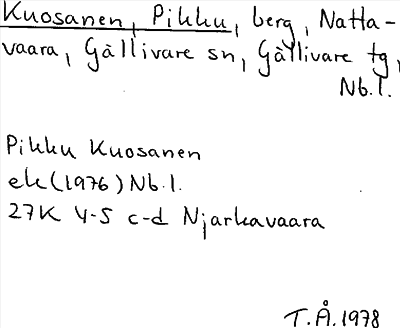 Kuosanen, Pikku, berg, Natta-
vaara, Gällivare sn, Gällivare tg,
Nb.l.
Pikku Kuosanen
ek (1976) Nb.l.
27K 4-5 c-d Njarkavaara
T.Å.1978